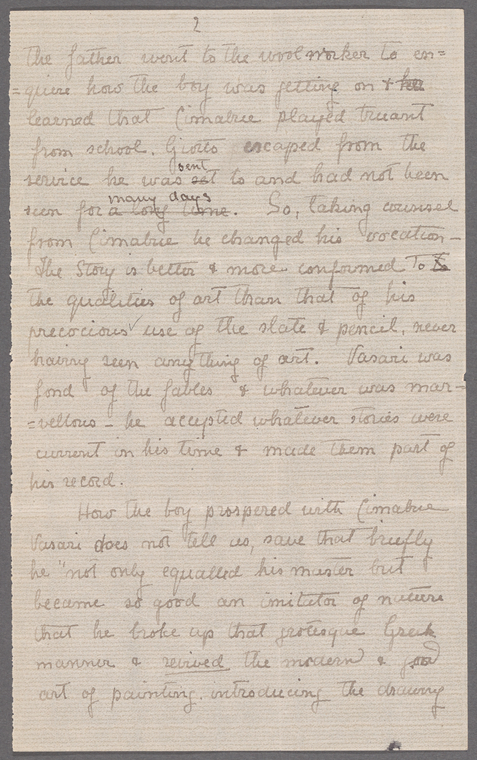 2
The father went to the wool worker to en=
=quire how the boy was getting on & he
learned that Cimabue played truant
from school. Giotto escaped from the
sent
service he was set to and had not been
many days
seen for a long time. So, taking counsel
from Cimabue he changed his vocation –
The Story is better & more conformed to
the qualities of art than that of his
precocious use of the slate & pencil, never
having seen anything of art. Vasari was
fond of the fables & whatever was mar-
=vellous – he accepted whatever stories were
current in his time & made them part of
his record.
How the boy prospered with Cimabue
Vasari does not tell us, save that briefly
he "not only equalled his master but
became so good an imitator of nature
that he broke up that grotesque Greek
manner & revived the modern & good
art of painting, introducing the drawing